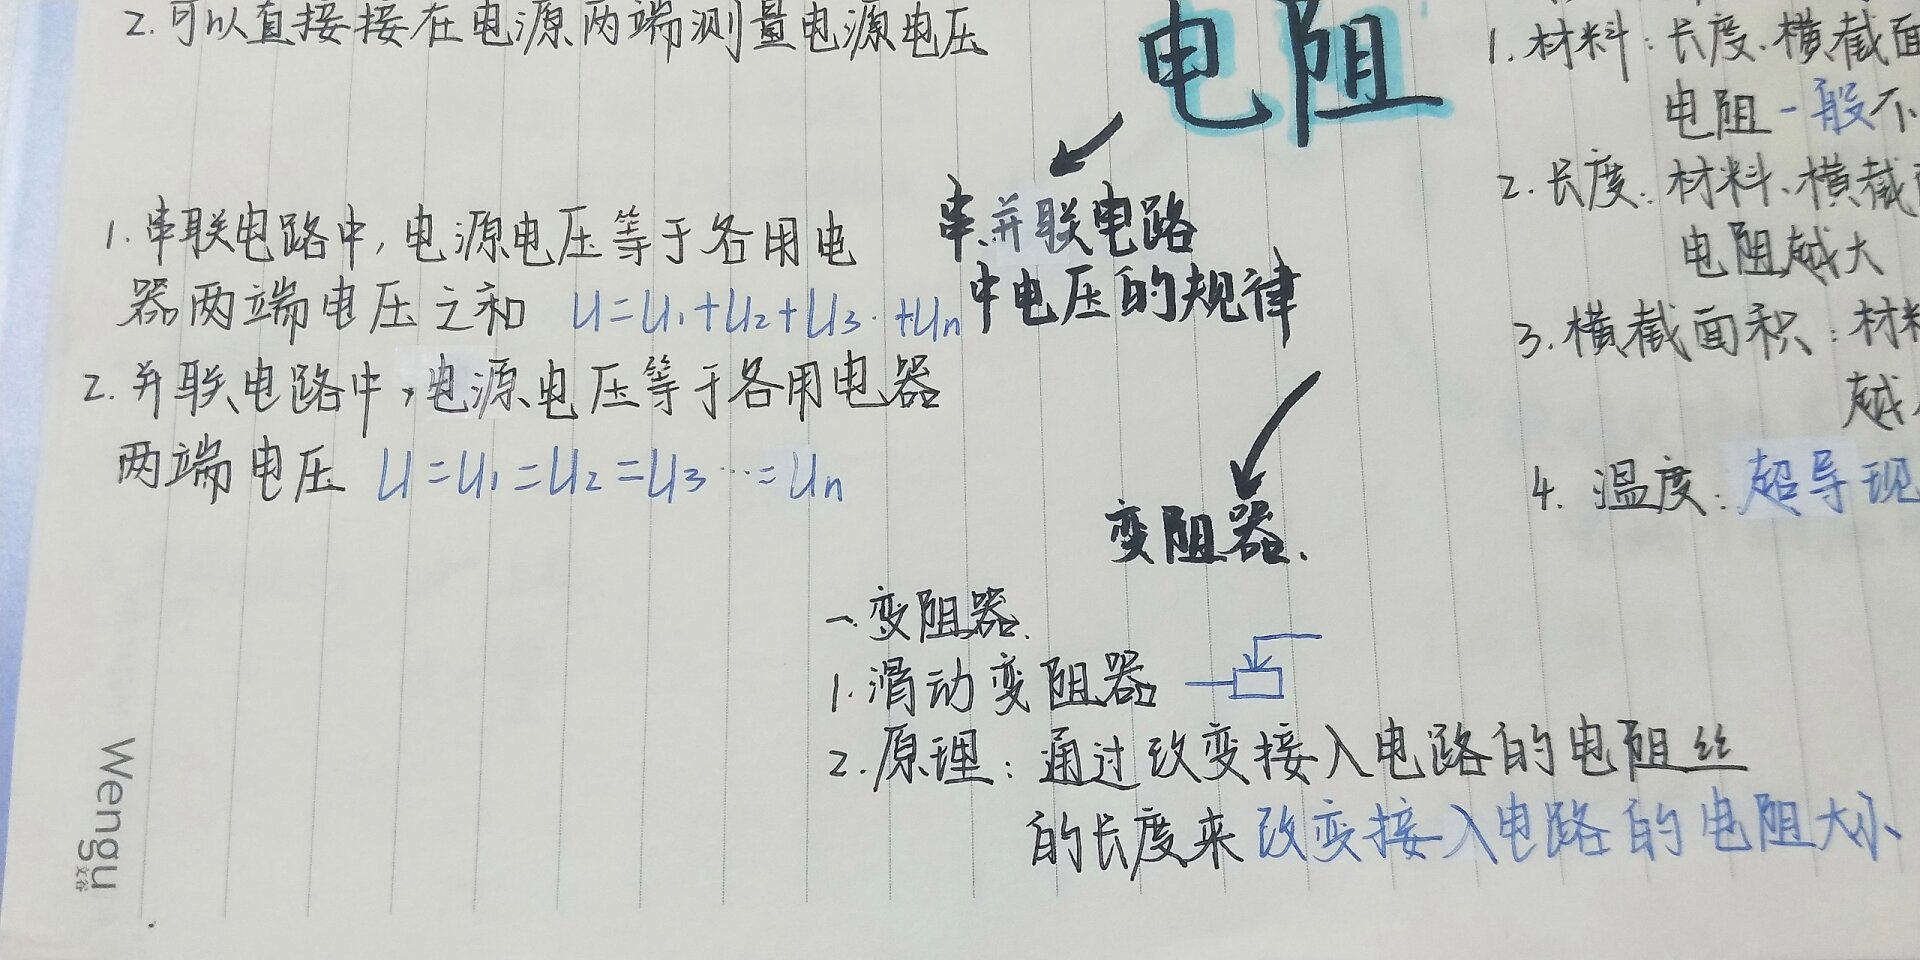 2.可以直接接在电源两端测量电源电压
电阻
串、并联电路
中电压的规律
1.串联电路中,电源电压等于各用电
器两端电压之和 U=U₁+U₂+U₃··+Uₙ
2.并联电路中,电源电压等于各用电器
两端电压 U=U₁=U₂=U₃···=Uₙ
变阻器.
一变阻器.
1.滑动变阻器
2.原理:通过改变接入电路的电阻丝
的长度来改变接入电路的电阻大小
1.材料:长度.横截面
电阻一般不
2.长度:材料、横截
电阻越大
3.横截面积:材料
越
4.温度:超导现
Wengu
文谷